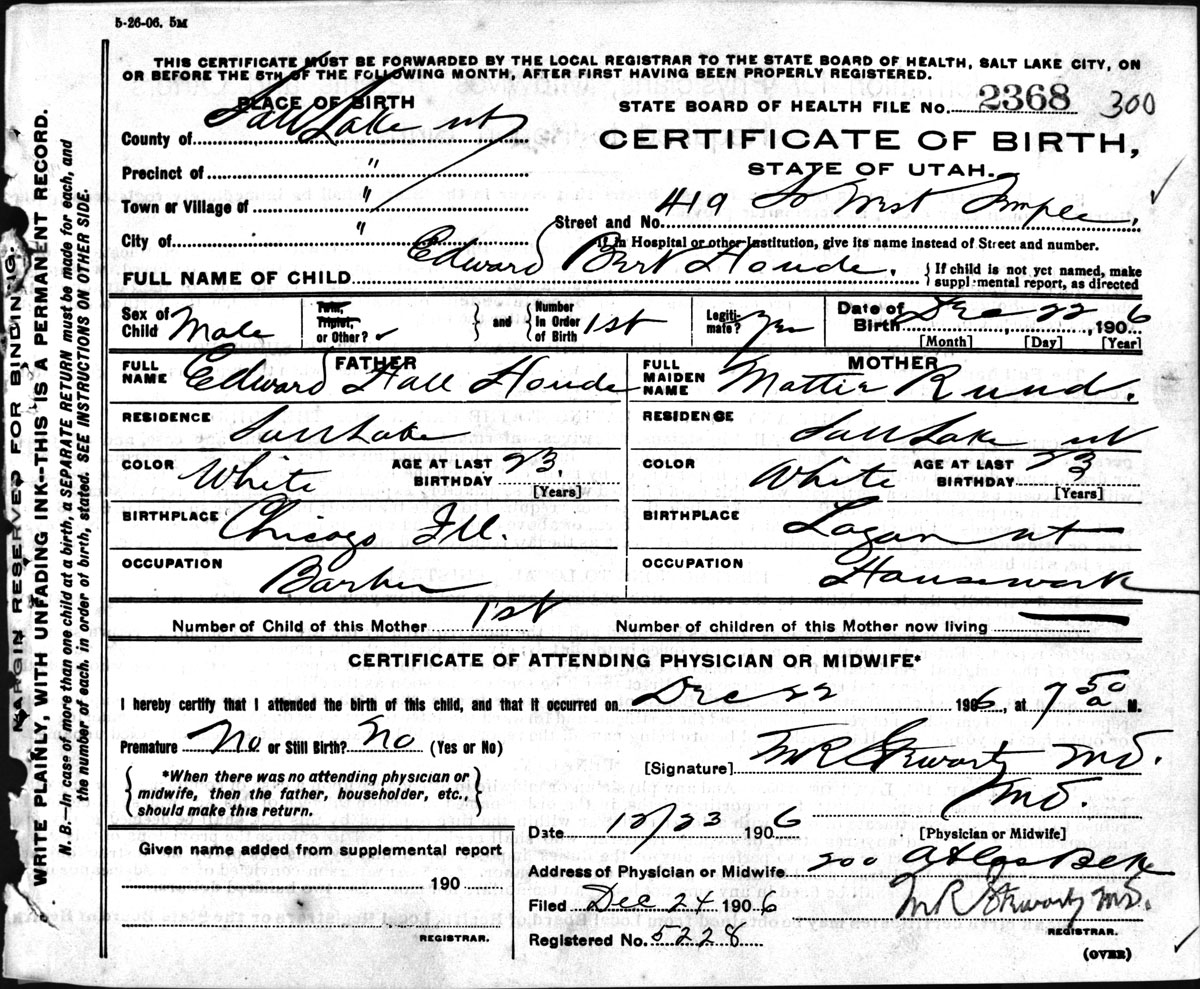 5-26-06. 5M
THIS CERTIFICATE MUST BE FORWARDED BY THE LOCAL REGISTRAR TO THE STATE BOARD OF HEALTH, SALT LAKE CITY, ON
OR BEFORE THE 5TH OF THE FOLLOWING MONTH, AFTER FIRST HAVING BEEN PROPERLY REGISTERED.
PLACE OF BIRTH
STATE BOARD OF HEALTH FILE NO. 2368 300
County of Salt Lake ut
CERTIFICATE OF BIRTH,
STATE OF UTAH.
Precinct of "
Town or Village of "
Street and No. 419 So West Temple.
City of "
If in Hospital or other Institution, give its name instead of Street and number.
FULL NAME OF CHILD Edward Bert Houde.
{If child is not yet named, make
supplemental report, as directed
Sex of Child Male
Twin, Triplet, or Other?
and
Number In Order of Birth 1st
Legitimate? Yes
Date of Birth Dec 22, 1906
[Month] [Day] [Year]
FATHER
FULL NAME Edward Hall Houde
RESIDENCE Salt Lake
COLOR White AGE AT LAST BIRTHDAY 23. [Years]
BIRTHPLACE Chicago Ill.
OCCUPATION Barber
MOTHER
FULL MAIDEN NAME Mattie Rund.
RESIDENCE Salt Lake ut
COLOR White AGE AT LAST BIRTHDAY 23 [Years]
BIRTHPLACE Logan ut
OCCUPATION Housework
Number of Child of this Mother 1st Number of children of this Mother now living
CERTIFICATE OF ATTENDING PHYSICIAN OR MIDWIFE*
I hereby certify that I attended the birth of this child, and that it occurred on Dec 22 1906, at 7 50 M.
Premature No or Still Birth? No (Yes or No)
[Signature] M.D.
*When there was no attending physician or
midwife, then the father, householder, etc.,
should make this return.
M.D.
[Physician or Midwife]
Date 12/23 1906
Given name added from supplemental report
190
REGISTRAR.
Address of Physician or Midwife 200 Atlas
Filed Dec 24 1906 M.D.
Registered No. 5228
REGISTRAR.
(OVER)
MARGIN RESERVED FOR BINDING.
WRITE PLAINLY, WITH UNFADING INK--THIS IS A PERMANENT RECORD.
N. B.—In case of more than one child at a birth, a SEPARATE RETURN must be made for each, and
the number of each, in order of birth, stated. SEE INSTRUCTIONS ON OTHER SIDE.